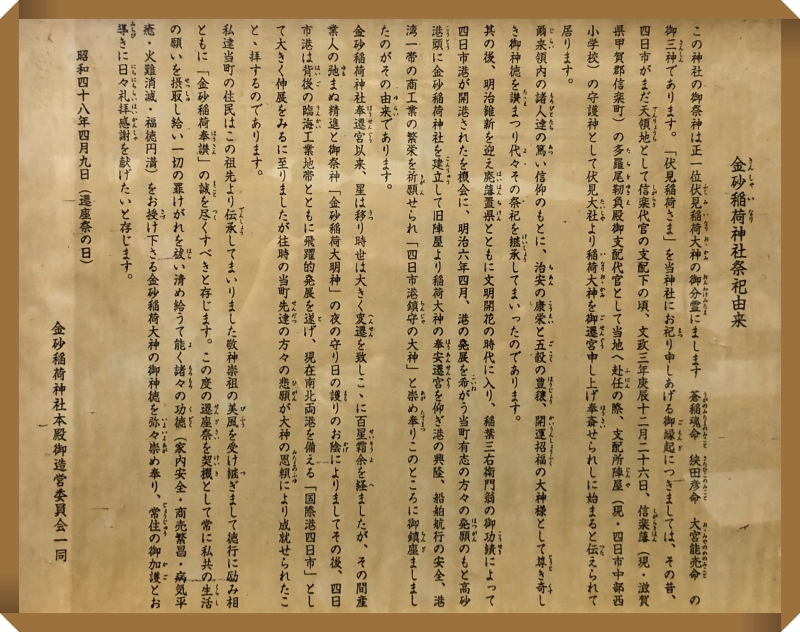 金砂稲荷神社祭祀由来
この神社の御祭神は正一位伏見稲荷大神の御分霊にまします 蒼稲魂命 狭田彦命 大宮能売命 の
御三神であります。「伏見稲荷さま」を当神社にお祀り申しあげる御縁起につきましては、その昔、
四日市がまだ天領地として信楽代官の支配下の頃、文政三年庚辰十二月二十六日、信楽藩（現・滋賀
県甲賀郡信楽町）の多羅尾靭負殿御支配代官として当地へ赴任の際、支配所陣屋（現・四日市中部西
小学校）の守護神として伏見大社より稲荷大神を御遷宮申し上げ奉斎せられしに始まると伝えられて
居ります。
爾来領内の諸人達の篤い信仰のもとに、治安の康栄と五穀の豊穣、開運招福の大神様として尊き奇し
き御神徳を讃えまつり代々その祭祀を継承してまいったのであります。
其の後、明治維新を迎え廃藩置県とともに文明開花の時代に入り、稲葉三右衛門翁の御功績によって
四日市港が開港されたを機会に、明治六年四月、港の発展を希がう当町有志の方々の発願のもと高砂
港頭に金砂稲荷神社を建立して旧陣屋より稲荷大神の奉安遷宮を仰ぎ港の興隆、船舶航行の安全、港
湾一帯の商工業の繁栄を祈願せられ「四日市港鎮守の大神」と崇め奉りこのところに御鎮座ましまし
たのがその由来であります。
金砂稲荷神社奉遷宮以来、星は移り時世は大きく変遷を致しこゝに百星霜余を経ましたが、その間産
業人の弛まぬ精進と御祭神「金砂稲荷大明神」の夜の守り日の護りのお陰によりましてその後、四日
市港は背後の臨海工業地帯とともに飛躍的発展を遂げ、現在南北両港を備える「国際港四日市」とし
て大きく伸展をみるに至りましたが往時の当町先達の方々の悲願が大神の恩頼により成就せられたこ
と、拝するのであります。
私達当町の住民はこの祖先より伝承してまいりました敬神崇祖の美風を受け継ぎまして徳行に励み相
ともに「金砂稲荷奉讃」の誠を尽くすべきと存じます。この度の遷座祭を契機として常に私共の生活
の願いを摂取し給い一切の罪けがれを祓い清め給うて能く諸々の功徳（家内安全・商売繁昌・病気平
癒・火難消滅・福徳円満）をお授け下さる金砂稲荷大神の御神徳を弥々崇め奉り、常住の御加護とお
導きに日々礼拝感謝を献げたいと存じます。
昭和四十八年四月九日（遷座祭の日）
金砂稲荷神社本殿御造営委員会一同